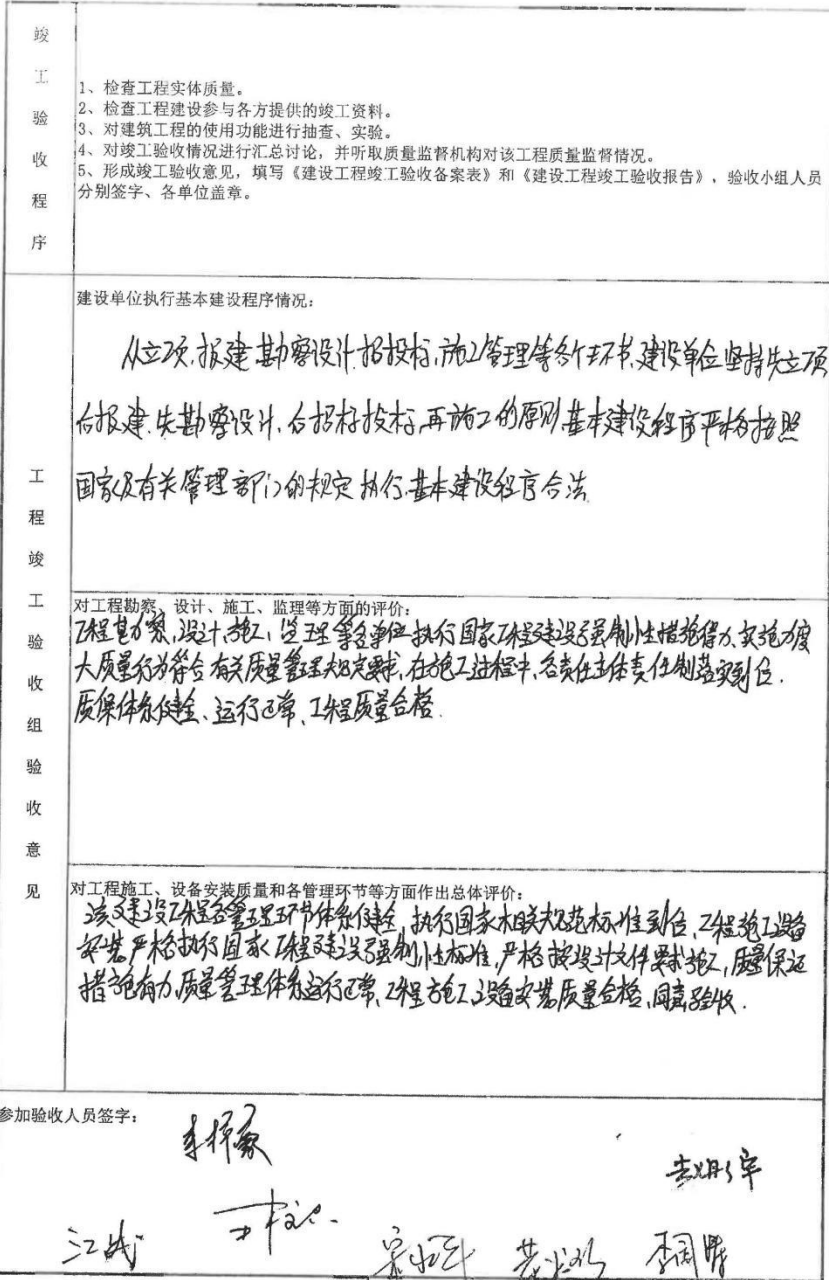 竣工验收程序
1、检查工程实体质量。
2、检查工程建设参与各方提供的竣工资料。
3、对建筑工程的使用功能进行抽查、实验。
4、对竣工验收情况进行汇总讨论，并听取质量监督机构对该工程质量监督情况。
5、形成竣工验收意见，填写《建设工程竣工验收备案表》和《建设工程竣工验收报告》，验收小组人员
分别签字、各单位盖章。
工程竣工验收组验收意见
建设单位执行基本建设程序情况：
从立项、报建、勘察设计、招投标、施工管理等各个环节，建设单位坚持先立项
后报建、先勘察设计、后招标投标、再施工的原则，基本建设程序严格按照
国家及有关管理部门的规定执行，基本建设程序合法
对工程勘察、设计、施工、监理等方面的评价：
工程勘察、设计、施工、监理等各单位执行国家工程建设强制性措施得力、实施力度
大质量行为符合有关质量管理规定要求，在施工过程中，各责任主体责任制落实到位．
质保体系健全、运行正常、工程质量合格．
对工程施工、设备安装质量和各管理环节等方面作出总体评价：
该建设工程各管理环节体系健全，执行国家相关规范标准到位，工程施工设备
安装严格执行国家工程建设强制性标准，严格按设计文件要求施工，质量保证
措施有力，质量管理体系运行正常，工程施工、设备安装质量合格，同意验收．
参加验收人员签字：